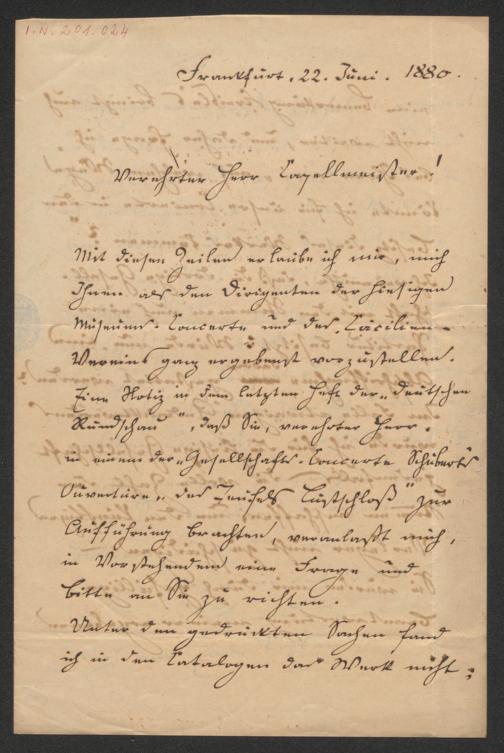 I. N. 201.024
Frankfurt, 22. Juni. 1880.
Verehrter Herr Capellmeister!
Mit diesen Zeilen erlaube ich mir, mich
Ihnen als den Dirigenten der hiesigen
Museums-Concerte und des Cäcilien-
Vereins ganz ergebenst vorzustellen.
Eine Notiz in dem letzten Heft der "deutschen
Rundschau", daß Sie, verehrter Herr.
in einem der "Gesellschafts-Concerte Schubert's
Ouvertüre "des Teufels Lustschloß" zur
Aufführung brachten, veranlaßt mich,
in Vorstehendem eine Frage und
bitte an Sie zu richten.
Unter den gedruckten Sachen fand
ich in den Catalogen das Werk nicht;